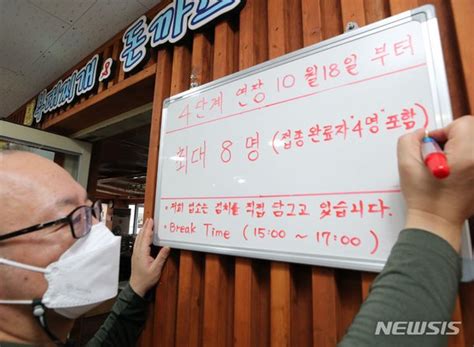 돈까스
4단계 연장 10월18일 부터
최대 8명 (접종 완료자 "4명" 포함)
* 저희 업소는 김치를 직접 담그고 있습니다.
* Break Time (15:00 ~ 17:00)
NEWSIS